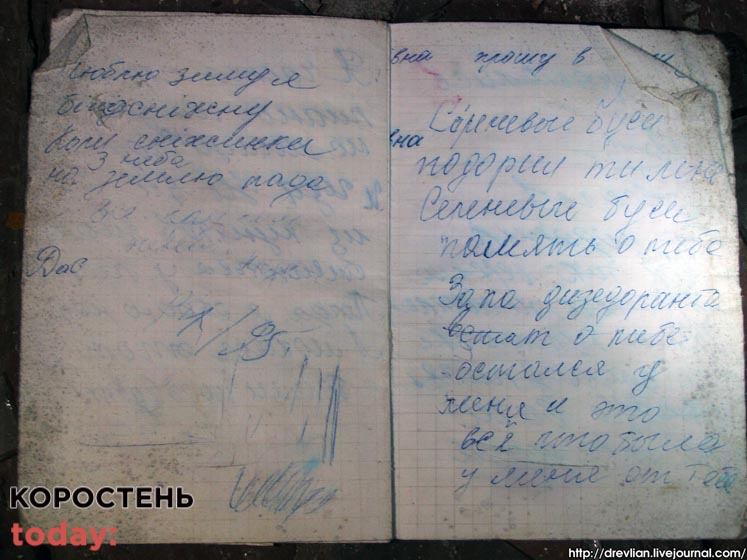 Люблю зиму я
білосніжну
Коли сніжинки
з неба
на землю пада
Дав
вна прошу в
Сереневые буси
вна
подорил ти мене
Сереневые буси
память о тебе
Запа дизедоранта
о тибе
остался у
меня и это
всё што была
у меня от тебе
КОРОСТЕНЬ
today:
http://drevlian.livejournal.com/